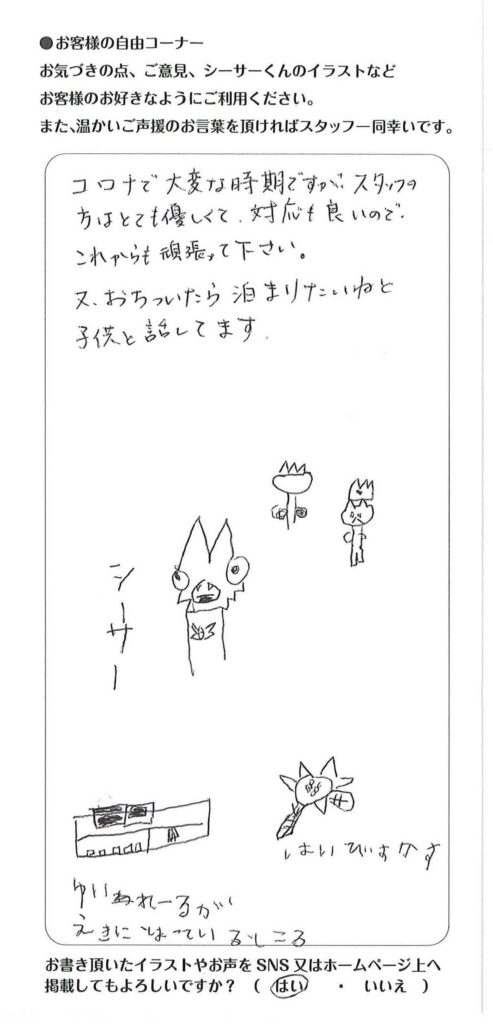 ●お客様の自由コーナー
お気づきの点、ご意見、シーサーくんのイラストなど
お客様のお好きなようにご利用ください。
また、温かいご声援のお言葉を頂ければスタッフ一同幸いです。
コロナで大変な時期ですが、スタッフの
方はとても優しくて、対応も良いので、
これからも頑張って下さい。
又、おちついたら泊まりたいねと
子供と話してます.
シーサー
はいびすかす
ゆいねれーるがい
えきにはいているところ
お書き頂いたイラストやお声をSNS又はホームページ上へ
掲載してもよろしいですか？（はい・いいえ）